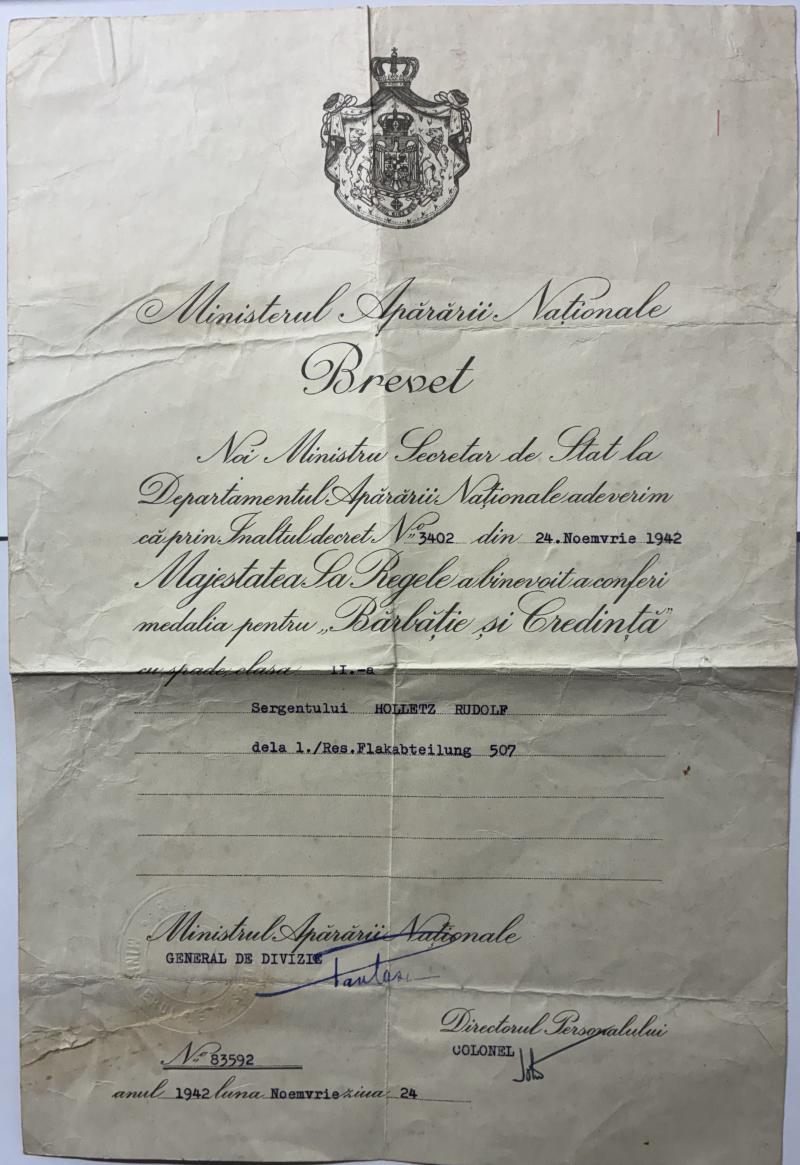 Ministerul Apărării Naționale
Brevet
Noi Ministru Secretar de Stat la
Departamentul Apărării Naționale adeverim
că prin Inaltul decret No 3402 din 24.Noemvrie 1942
Majestatea Sa Regele a binevoit a conferi
medalia pentru „Bărbăție și Credință”
cu spade, clasa II.-a
Sergentului HOLLETZ RUDOLF
dela 1./Res.Flakabteilung 507
Ministrul Apărării Naționale
GENERAL DE DIVIZIE
Directorul Personalului
COLONEL
No 83592
anul 1942 luna Noemvrie ziua 24